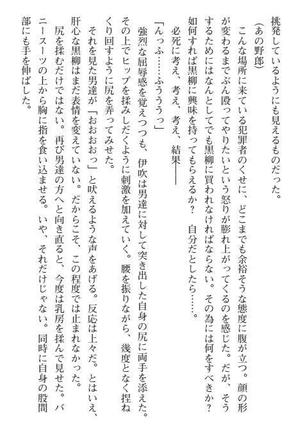 挑発しているようにも見えるものだった。
（あの野郎）
　こんな場所に来ている犯罪者のくせに、どこまでも余裕そうな態度に腹が立つ。顔の形
が変わるまでぶん殴ってやりたいという怒りが膨れ上がってくるのを感じた。だが、そう
するためにはなんとしてでも黒柳に買われなければならない。その為には何をすべきか？
如何すれば黒柳に興味を持ってもらえるか？　自分だとしたら……。
　必死に考え、考え、考え、結果――
「んっふ……ふううぅっ」
　強烈な屈辱感を覚えつつも、伊吹は男達に対して突き出した自身の尻に両手を添えた。
その上でヒップを揉みしだくように刺激を加えていく。腰を振りながら、幾度となく捏ね
くり回すように尻を弄ってみせた。
　それを見た男達が「おおおおっ」と吠えるような声をあげる。反応は上々だ。とはいえ、
肝心な黒柳はまだ表情を変えていない。だからこそ、この程度では止まれなかった。
　尻を揉むだけではない。再び男達の方へと向き直ると、今度は乳房を揉んで見せた。バ
ニースーツの上から胸に指を食い込ませる。いや、それだけじゃない。同時に自身の股間
部にも手を伸ばした。